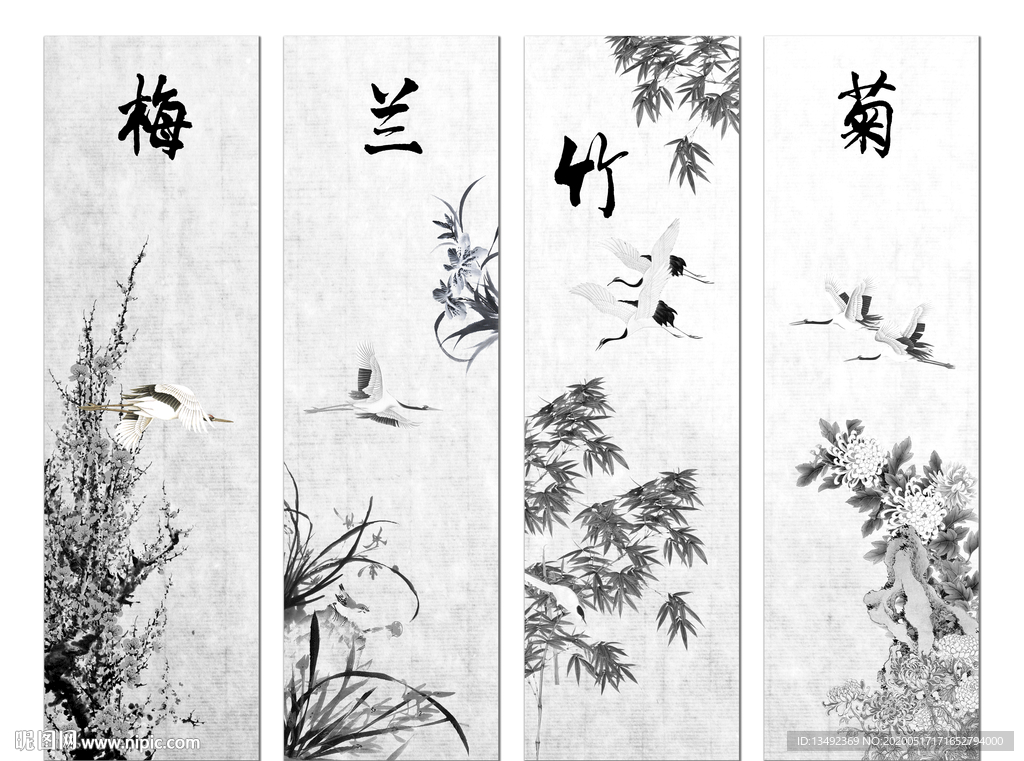 梅
兰
竹
菊
昵图网 www.nipic.com
ID:13492369 NO:20200517171652794000